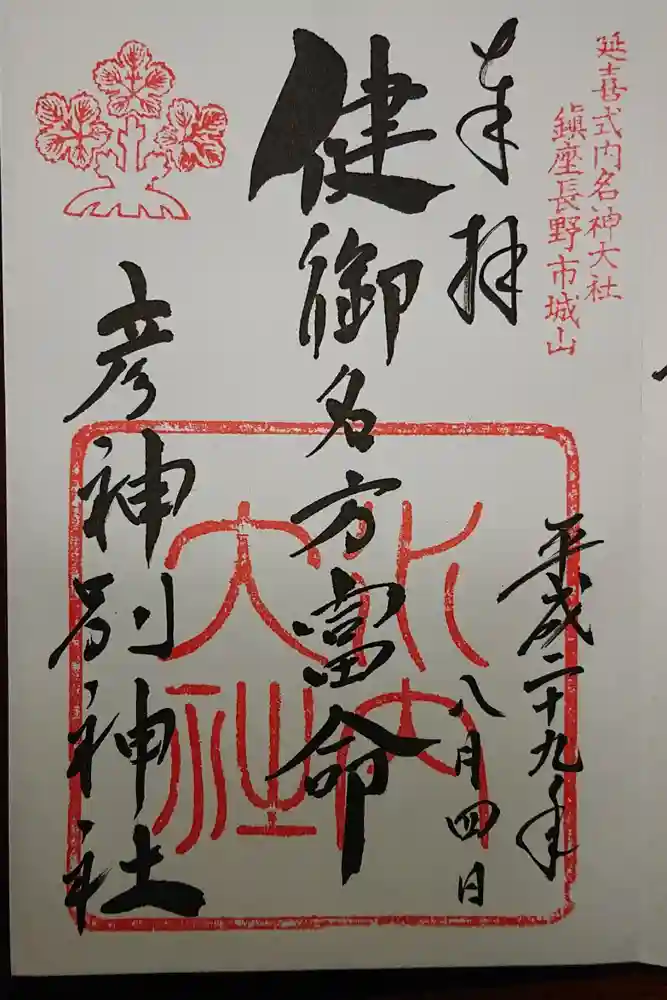 延喜式内名神大社
鎮座長野市城山
奉拝
平成二十九年
八月四日
健御名方富命
彦神別神社
水内
大社